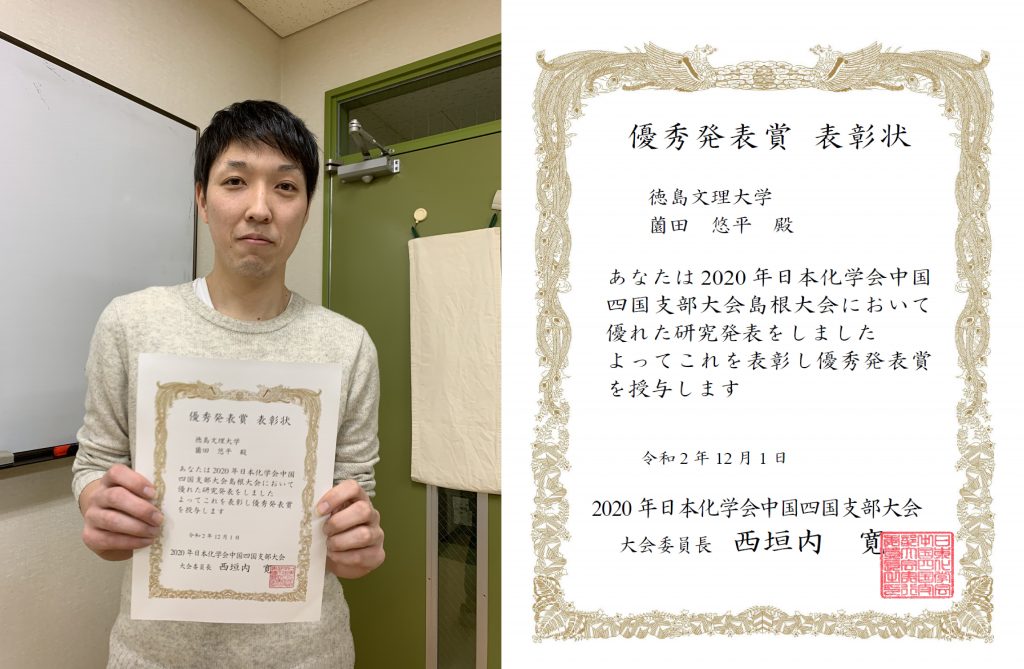 優秀発表賞 表彰状
徳島文理大学
薗田 悠平 殿
あなたは2020年日本化学会中国
四国支部大会島根大会において
優れた研究発表をしました
よってこれを表彰し優秀発表賞
を授与します
令和2年12月1日
2020年日本化学会中国四国支部大会
大会委員長 西垣内 寛
優秀発表賞 表彰状
徳島文理大学
薗田 悠平 殿
あなたは2020年日本化学会中国
四国支部大会島根大会において
優れた研究発表をしました
よってこれを表彰し優秀発表賞
を授与します
令和2年12月1日
2020年日本化学会中国四国支部大会
大会委員長 西垣内 寛